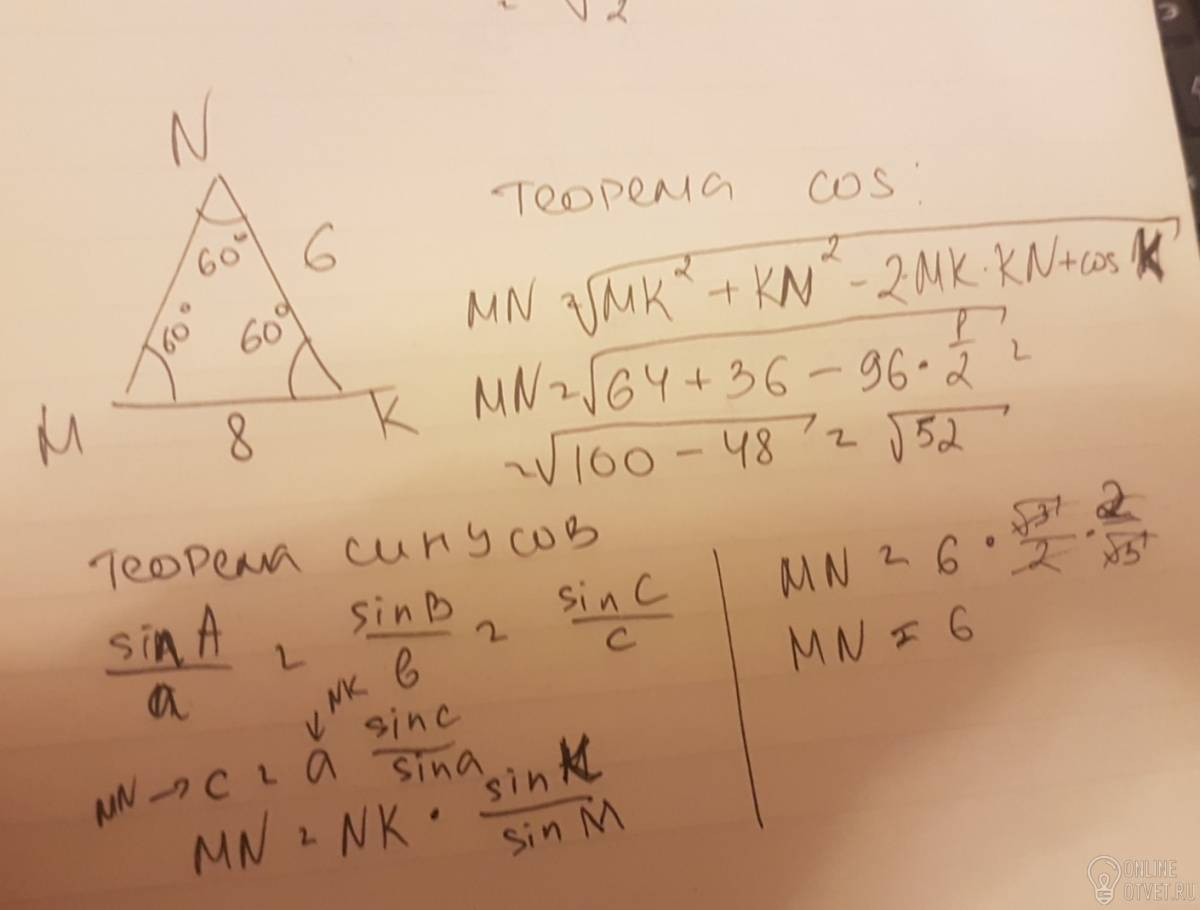 √2
N
60°
6
60°
60°
M
8
K
теорема cos:
MN = √MK² + KN² - 2·MK·KN + cos K
MN = √64 + 36 - 96 · 1/2 =
= √100 - 48 = √52
теорема синусов
sin A / a = sin B / b = sin C / c
NK
MN → c = a sin c / sin a
MN = NK · sin K / sin M
MN = 6 · √3/2 · 2/√3
MN = 6
ONLINE
OTVET.RU